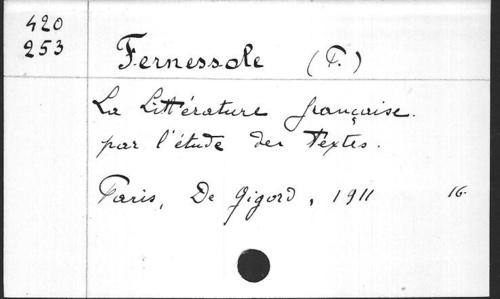 420
253
Fernessole (P.)
La Littérature française.
par l'étude des Textes.
Paris, De Gigord, 1911 16.